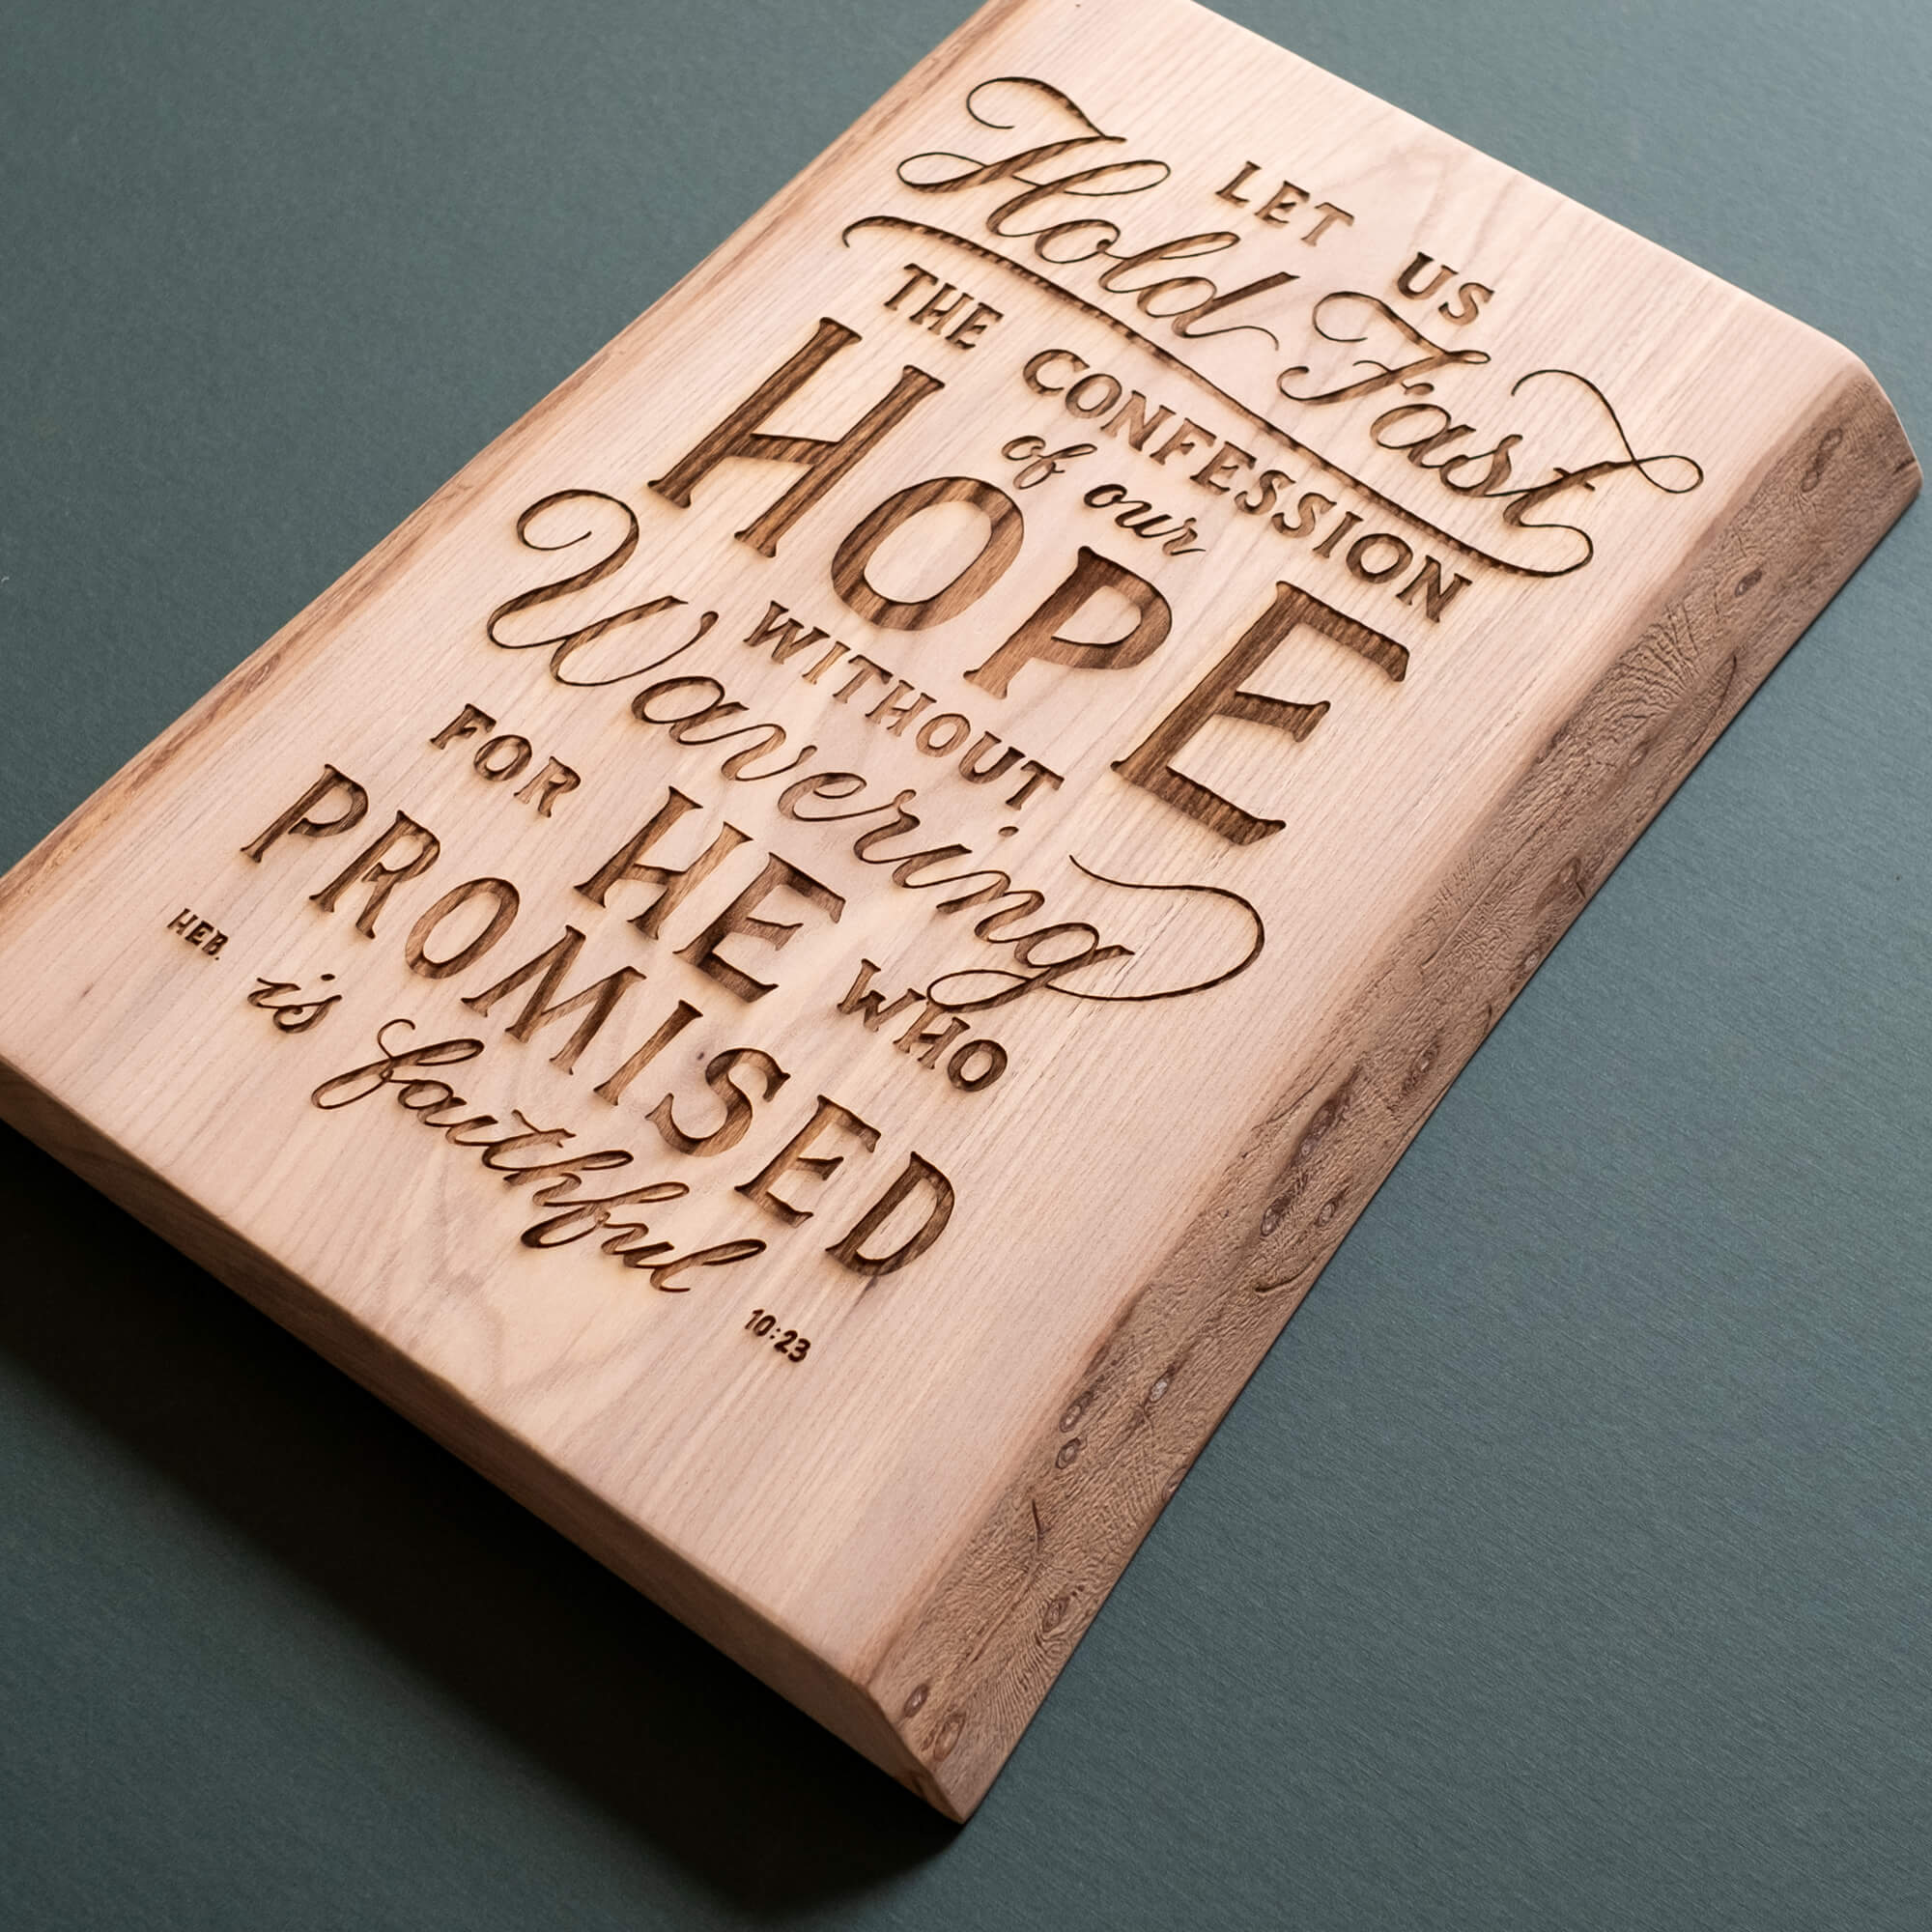 LET US
Hold Fast
THE CONFESSION
of our
HOPE
WITHOUT
Wavering
FOR HE WHO
PROMISED
is faithful
HEB. 10:23